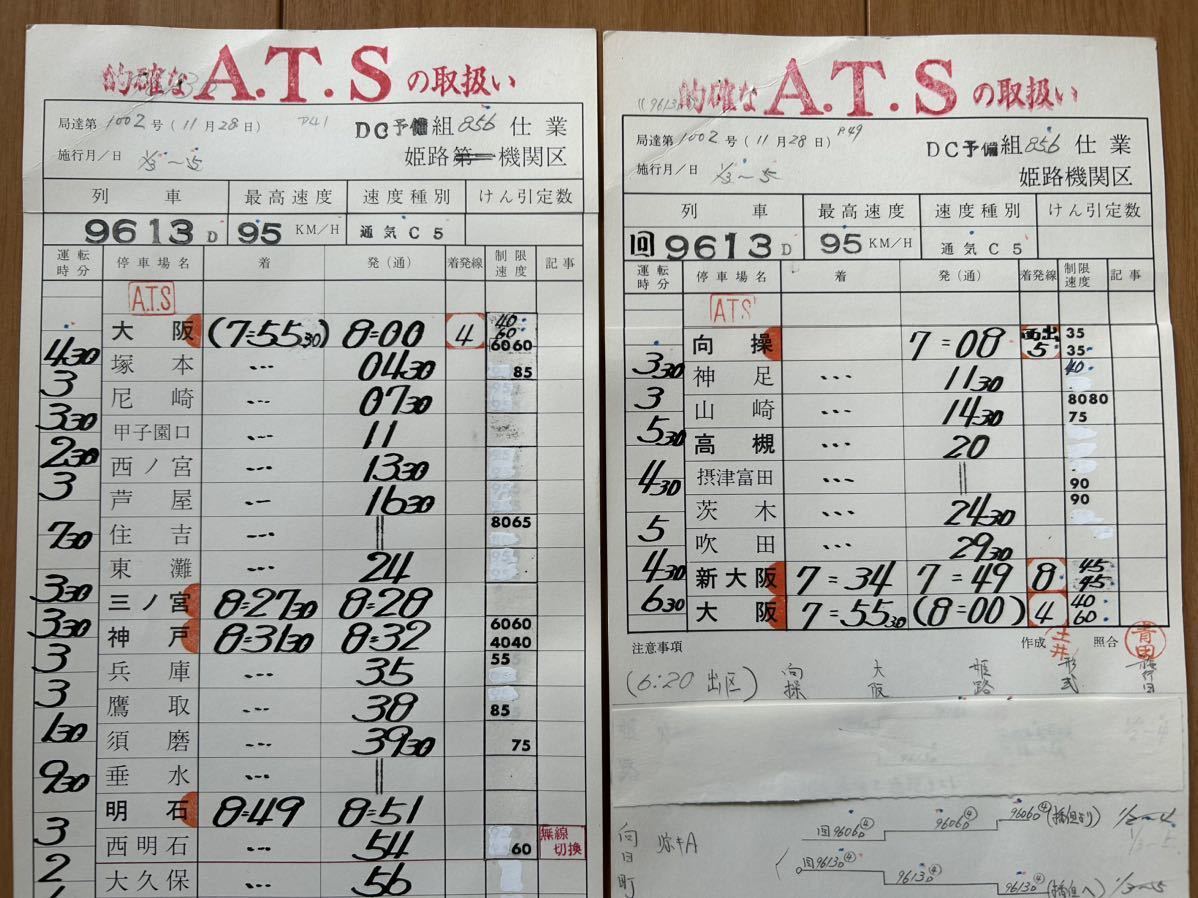 的確なA.T.Sの取扱い
局達第1002号(11月28日) P41
DC予備組856仕業
施行月/日 1/3〜5
姫路第一機関区
列車 最高速度 速度種別 けん引定数
9613D 95KM/H 通気C5
運転時分 停車場名 着 発(通) 着発線 制限速度 記事
A.T.S
大阪 (7=55 30) 8=00 4 40 60 60 60
4 30
塚本 … 04 30 85
3
尼崎 … 07 30
3 30
甲子園口 … 11
2 30
西ノ宮 … 13 30
3
芦屋 … 16 30
住吉 ‖ 80 65
7 30
東灘 … 24
3 30
三ノ宮 8=27 30 8=28
3 30
神戸 8=31 30 8=32 60 60 40 40
3
兵庫 … 35 55
3
鷹取 … 38 85
1 30
須磨 … 39 30 75
垂水 … ‖
9 30
明石 8=49 8=51
3
西明石 … 54 60 無線切換
2
大久保 … 56
的確なA.T.Sの取扱い
局達第1002号(11月28日) P49
DC予備組856仕業
施行月/日 1/3〜5
姫路機関区
列車 最高速度 速度種別 けん引定数
回9613D 95KM/H 通気C5
運転時分 停車場名 着 発(通) 着発線 制限速度 記事
ATS
向操 7=08 西出5 35 35
3 30
神足 … 11 30 40
3
山崎 … 14 30 80 80 75
5 30
高槻 … 20
摂津富田 … ‖ 90
4 30
茨木 … 24 30 90
5
吹田 … 29 30
4 30
新大阪 7=34 7=49 8 45 45
6 30
大阪 7=55 30 (8=00) 4 40 60
注意事項 作成 土井 照合 青田
(6:20 出区) 向操 大阪 姫路 形式
回9606D④ 9606D④ 9606D④(播但より) 1/2-4
1/3-5
向日町
回9613D④ 9613D④ 9613D④(播但へ) 1/3-5